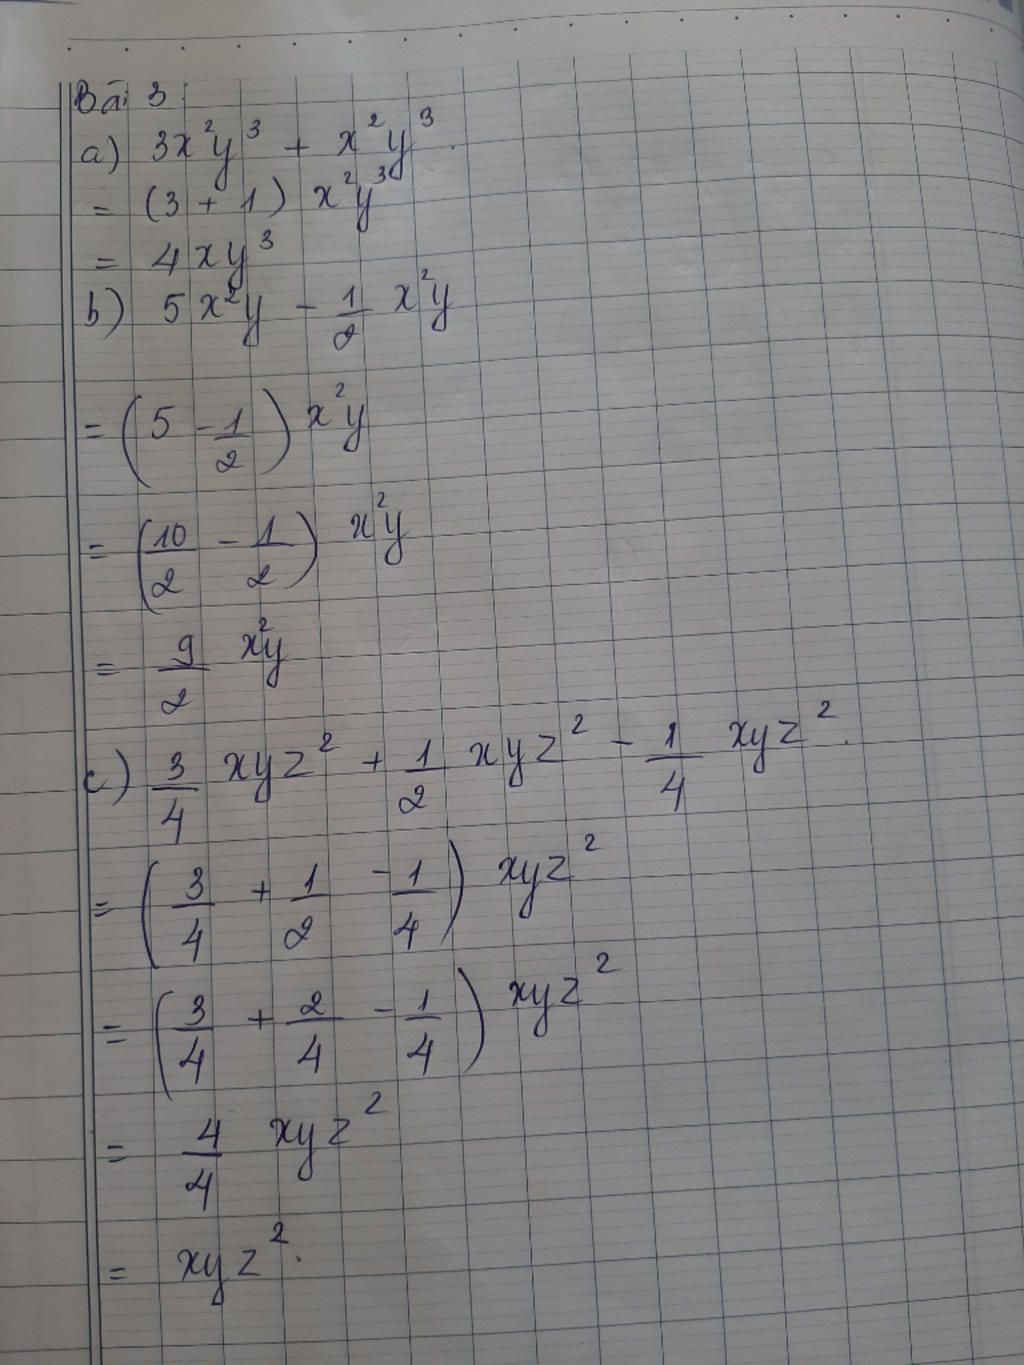 Bài 3
a) 3x²y³ + x²y³.
= (3 + 1) x²y³
= 4xy³
b) 5x²y - 1/2 x²y
= (5 - 1/2) x²y
= (10/2 - 1/2) x²y
= 9/2 x²y
c) 3/4 xyz² + 1/2 xyz² - 1/4 xyz².
= (3/4 + 1/2 - 1/4) xyz²
= (3/4 + 2/4 - 1/4) xyz²
= 4/4 xyz²
= xyz².